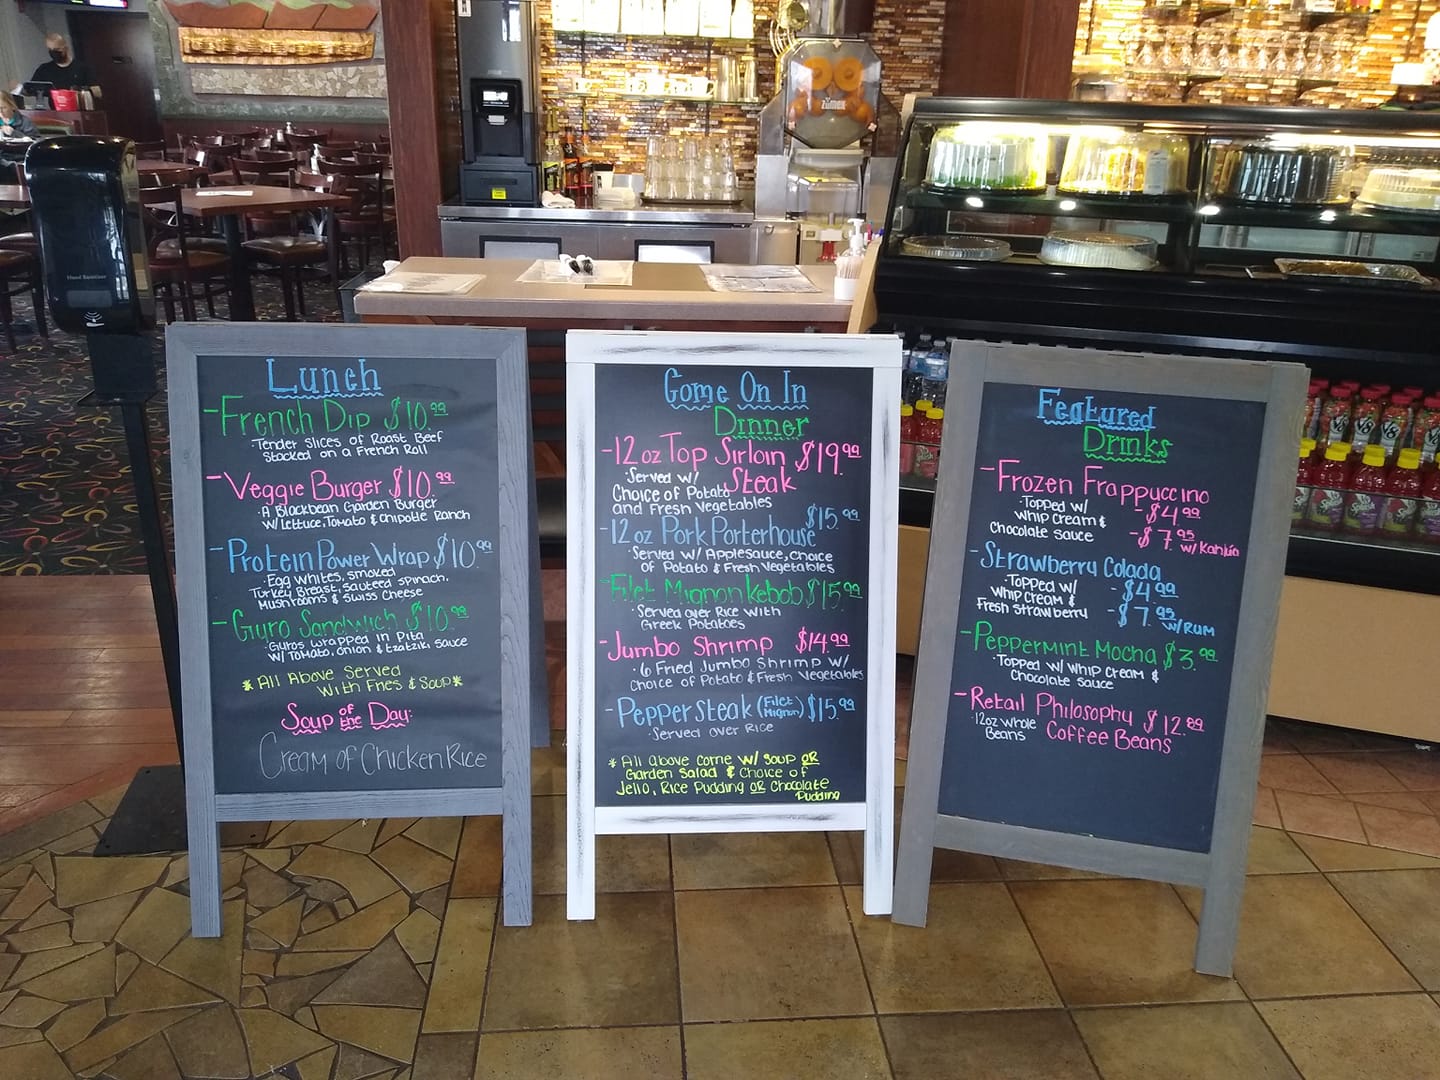 Lunch
-French Dip $10.99
·Tender slices of Roast Beef
stacked on a French Roll
-Veggie Burger $10.99
·A Blackbean Garden Burger
w/ Lettuce, Tomato & Chipotle Ranch
-Protein Power Wrap $10.99
·Egg whites, smoked
Turkey Breast, sauteed spinach,
Mushrooms & Swiss Cheese
-Gyro Sandwich $10.99
·Gyros wrapped in Pita
w/ Tomato, onion & tzatziki sauce
*All Above Served
With Fries & Soup*
Soup of the Day:
Cream of Chicken Rice
Come On In
Dinner
-12 oz Top Sirloin $19.99
Steak
·Served w/
Choice of Potato
and Fresh Vegetables
-12 oz Pork Porterhouse $15.99
·Served w/ Applesauce, choice
of Potato & Fresh Vegetables
-Filet Mignon Kebob $15.99
·Served over Rice with
Greek Potatoes
-Jumbo Shrimp $14.99
·6 Fried Jumbo Shrimp w/
Choice of Potato & Fresh Vegetables
-Pepper Steak (Filet Mignon) $15.99
·Served over Rice
*All above come w/ soup OR
Garden Salad & Choice of
Jello, Rice Pudding OR Chocolate
Pudding
Featured
Drinks
-Frozen Frappuccino
·Topped w/
Whip Cream &
Chocolate sauce
-$4.99
-$7.95 w/ Kahlúa
-Strawberry Colada
·Topped w/
Whip Cream &
Fresh strawberry
-$4.99
-$7.95 w/ RUM
-Peppermint Mocha $3.99
·Topped w/ Whip Cream &
Chocolate Sauce
-Retail Philosophy $12.89
Coffee Beans
·12oz whole
Beans
Hand Sanitizer
zumex
V8
Splash